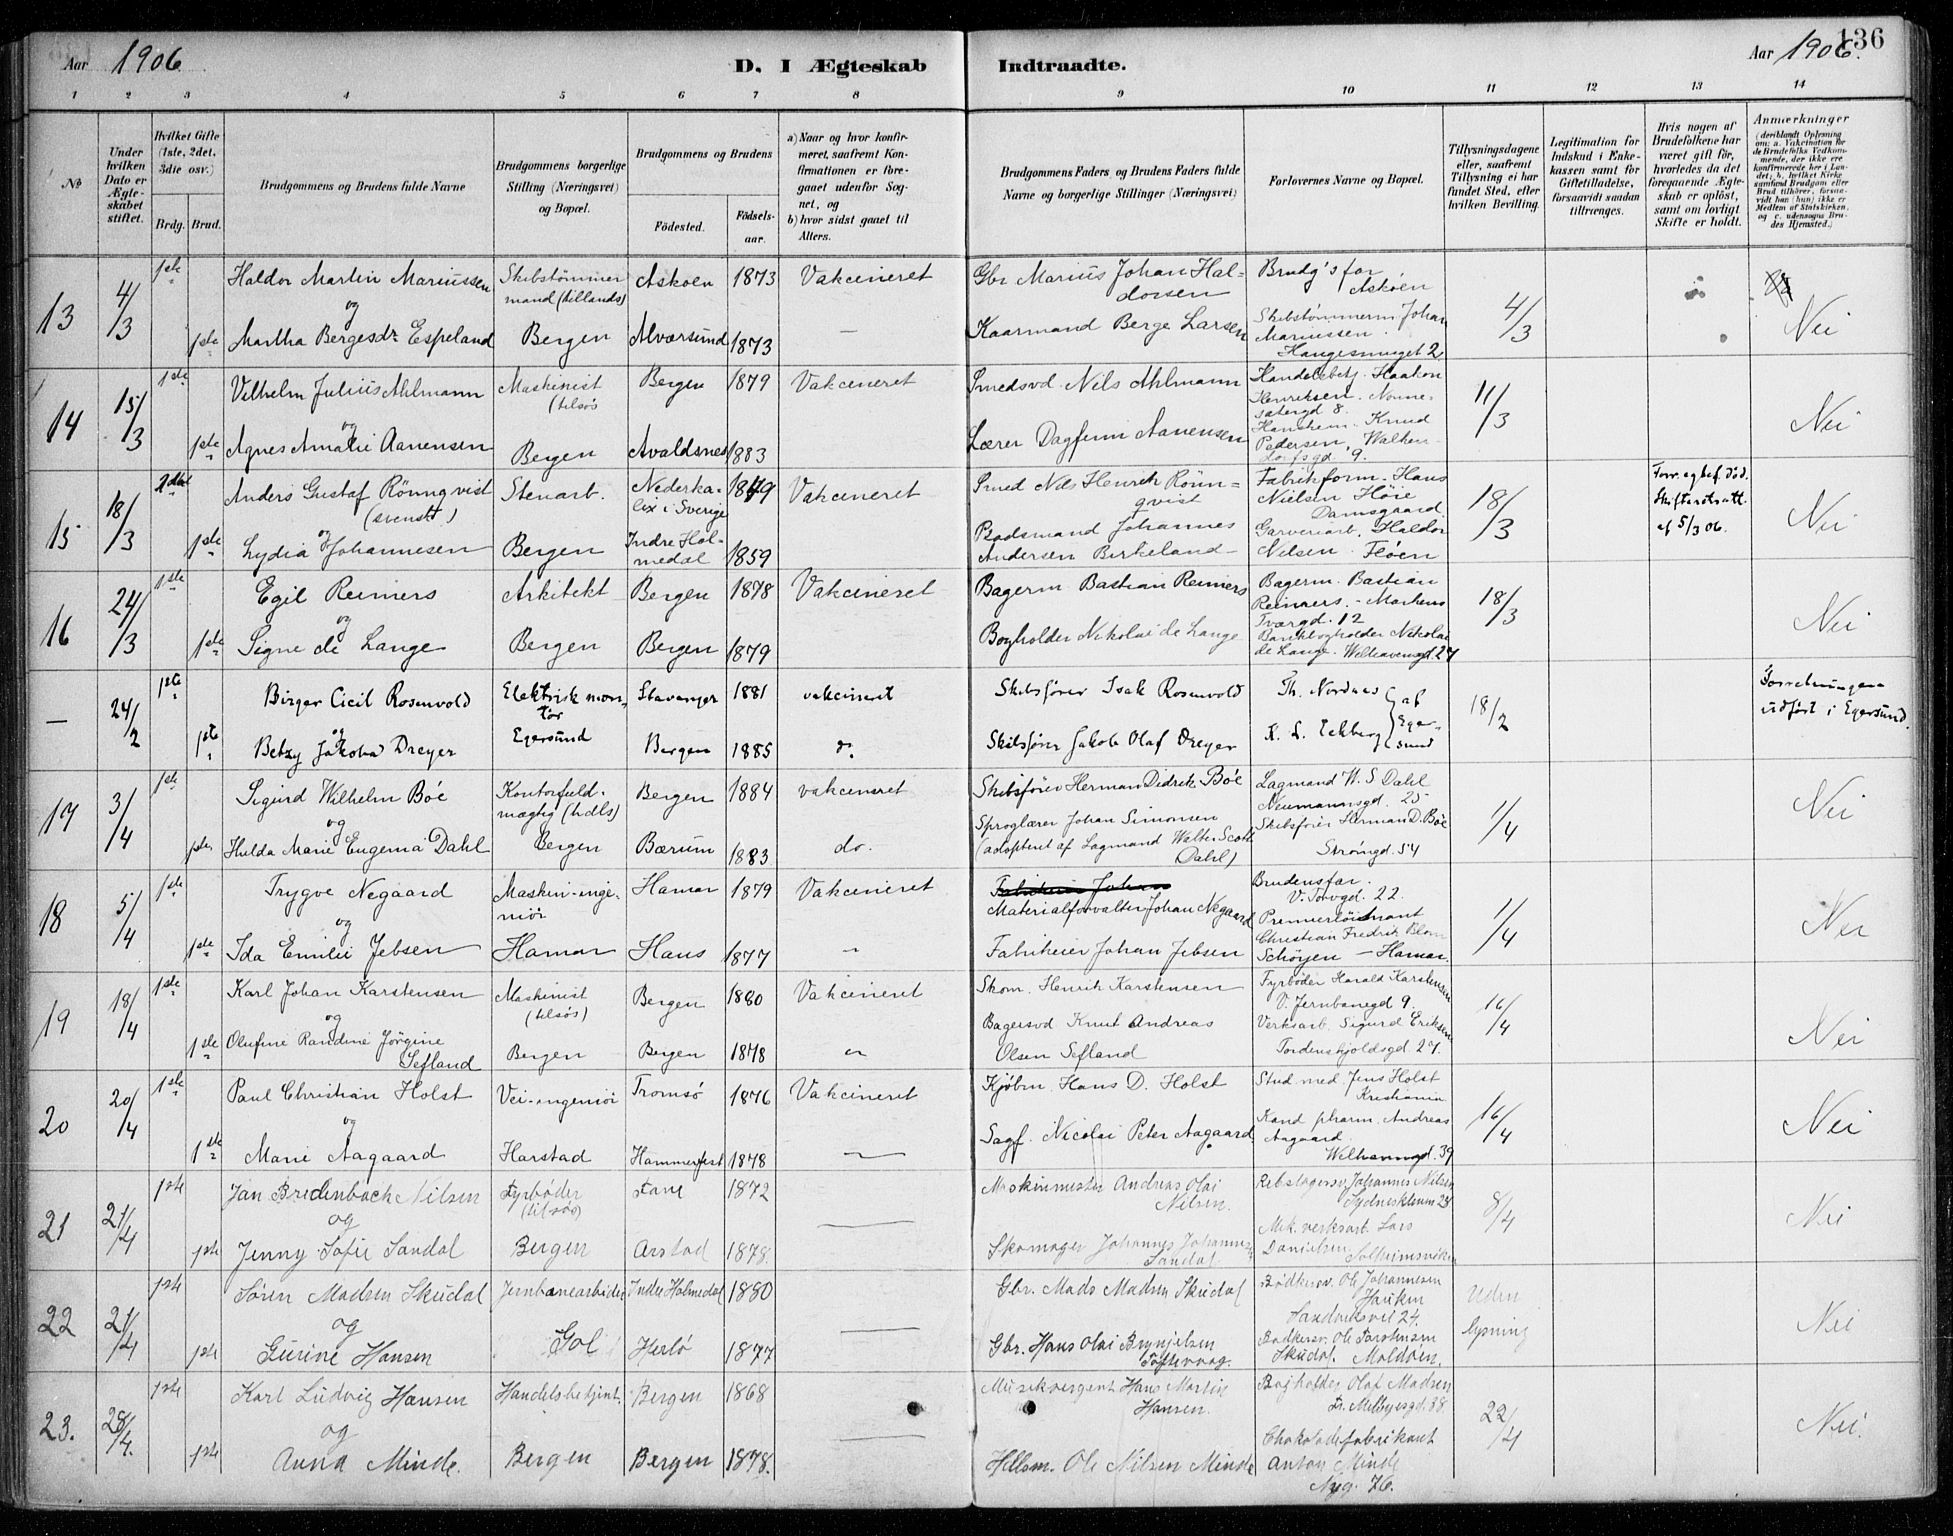 136
Aar 1906
D. I Ægteskab Indtraadte.
Aar 1906.
1 2 3 4 5 6 7 8 9 10 11 12 13 14
No
Under hvilken Dato er Ægteskabet stiftet.
Hvilket Gifte (1ste, 2det, 3die osv.)
Brdg. Brud.
Brudgommens og Brudens fulde Navne
Brudgommens borgerlige Stilling (Næringsvei) og Bopæl.
Brudgommens og Brudens
Fødested.
Fødselsaar.
a) Naar og hvor konfirmeret, saafremt Konfirmationen er foregaaet udenfor Sognet, og
b) hvor sidst gaaet til Alters.
Brudgommens Faders og Brudens Faders fulde Navne og borgerlige Stillinger (Næringsvei)
Forlovernes Navne og Bopæl.
Tillysningsdagene eller, saafremt Tillysning ei har fundet Sted, efter hvilken Bevilling.
Legitimation for Indskud i Enkekassen samt for Giftetilladelse, forsaavidt saadan tiltrænges.
Hvis nogen af Brudefolkene har været gift før, hvorledes da det foregaaende Ægteskab er opløst, samt om lovligt Skifte er holdt.
Anmerkninger
(deriblandt Oplysning om: a. Vakcination for de Brudefolks Vedkommende, der ikke ere konfirmerede her i Landet; b. hvilket Kirkesamfund Brudgom eller Brud tilhører, forsaavidt han (hun) ikke er Medlem af Statskirken, og c. udensogns Brudes Hjemsted.)
13 4/3 1ste Haldor Martin Mariussen Skibstømmermand (tillands) Askøen 1873 Vakcineret Gbr Marius Johan Haldorsen Brudg's far Askøen 4/3 Nei
og
1ste Martha Bergesdr Espeland Bergen Alværsund 1873 — Kaarmand Berge Larsen Skibstømmerm Johan Mariussen Haugesmuget 2
14 15/3 1ste Vilhelm Julius Ahlmann Maskinist (tilsøs Bergen 1879 Vakcineret Smedsvd Nils Ahlmann Handelsbetj. Haakon Henriksen. Nonnesætergd 8. 11/3 Nei
og
1ste Agnes Amalie Aanensen Bergen Avaldsnes 1883 Lærer Dagfinn Aanensen Knud Pedersen, Walkendorfsgd. 9.
15 18/3 2det Anders Gustaf Rönnqvist (svensk) Stenarb. Nederkalix i Sverige 1849 Vakcineret Smed Nils Henrik Rönnqvist Fabrikform. Hans Nielsen Høie Damsgaard 18/3 Skifteretsatt. af 5/3 06. Nei
og
1ste Lydia Johannesen Bergen Indre Holmedal 1859 Baadsmand Johannes Andersen Birkeland Garveriarb. Haldor Nilsen Fløen
16 24/3 1ste Egil Reimers Arkitekt Bergen 1878 Vakcineret Bagerm Bastian Reimers Bagerm. Bastian Reimers. - Markens Tværgd. 12 18/3 Nei
og
1ste Signe de Lange Bergen Bergen 1879 Bogholder Nikolai de Lange Bankbogholder Nikolai de Lange. Welhavensgd. 27
— 24/2 1ste Birger Cicil Rosenvold Elektrisk montør Stavanger 1881 vakcineret Skibsfører Isak Rosenvold Th. Nordnes af Egersund 18/2 Forretningen udført i Egersund.
og
1ste Betzy Jakoba Dreyer Egersund Bergen 1885 do. Skibsfører Jakob Olaf Dreyer K. L. Eckberg
17 3/4 1ste Sigurd Wilhelm Böe Kontorfuldmægtig (hdls) Bergen 1884 vakcineret Skibsfører Herman Didrik Böe Lagmand W. S Dahl Neumannsgd. 25 1/4 Nei
og
1ste Hulda Marie Eugenia Dahl Bergen Bærum 1883 do. Sproglærer Johan Simonsen (adopteret af Lagmand Walter Scott Dahl) Skibsfører Herman D. Böe Strømgd. 54
18 5/4 1ste Trygve Negaard Maskin-ingeniør Hamar 1879 Vakcineret Materialforvalter Johan Negaard Brudensfar. V. Torvgd. 22. 1/4 Nei
og
1ste Ida Emilie Jebsen Hamar Haus 1877 Fabrikeier Johan Jebsen Premierløitnant Christian Fredrik Blom Schøyen — Hamar.
19 18/4 1ste Karl Johan Karstensen Maskinist (tilsøs) Bergen 1880 Vakcineret Skom. Henrik Karstensen Fyrbøder Harald Karstensen V. Jernbanegd 9. 16/4 Nei
og
1ste Olufine Randine Jørgine Sefland Bergen Bergen 1878 Bagersvd Knut Andreas Olsen Sefland Verksarb. Sigurd Eriksen Tordenskjoldsgd. 27.
20 20/4 1ste Paul Christian Holst Vei-ingeniør Tromsø 1876 Vakcineret Kjøbm. Hans D. Holst Stud med Jens Holst Kristiania 16/4 Nei
og
1ste Marie Aagaard Harstad Hammerfest 1878 — Sagf. Nicolai Peter Aagaard Kand pharm. Andreas Aagaard Welhavensgd. 39
21 21/4 1ste Jan Bredenbach Nilsen Fyrbøder (tilsøs) 1872 — Maskinmester Andreas Olai Nilsen. Johannes Nilsen Sydneskleven 24 8/4 Nei
og
1ste Jenny Sofie Sandal Bergen Arstad 1878. Skomager Johannes Johannes. Sandal. Mek. verksarb. Lars Danielsen Solheimsviken
22 21/4 1ste Søren Madsen Skudal Jernbanearbeider Indre Holmedal 1880 — Gbr. Mads Madsen Skudal Bødkersv. Ole Johannesen Hauken Sandviksvei 24. Uden lysning Nei
og
1ste Gurine Hansen Gol Herlø 1877 Gbr. Hans Olai Brynjelsen Toftevaag. Bødkersv. Ole Torstensen Skudal. Moldøen.
23. 28/4. 1ste Karl Ludvig Hansen Handelsbetjent. Bergen 1868 — Musiksergent Hans Martin Hansen. Bogholder Olaf Madsen 38 22/4 Nei.
og
1ste Anna Minde. Bergen Bergen 1878. Ole Nilsen Minde Chokoladefabrikant Anton Minde Nyg. 76.